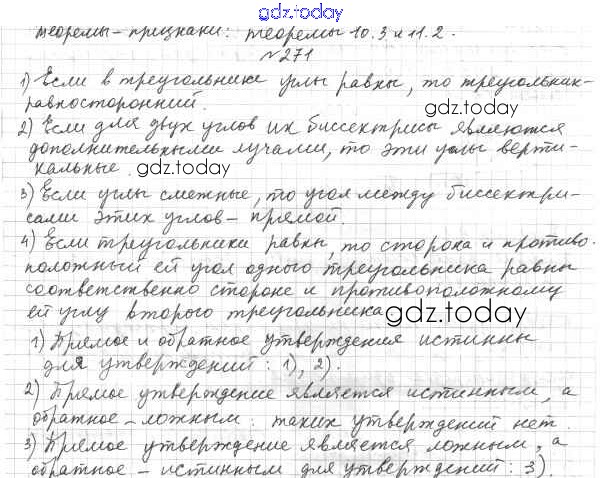 gdz.today
теоремы-признаки: теоремы 10.3 и 11.2.
№271
1) Если в треугольнике углы равны, то треугольник-
равносторонний.
gdz.today
2) Если для двух углов их биссектрисы являются
дополнительными лучами, то эти углы верти-
кальные.
gdz.today
3) Если углы смежные, то угол между биссектри-
сами этих углов - прямой.
4) Если треугольники равны, то сторона и противо-
положный ей угол одного треугольника равны
соответственно стороне и противоположному
ей углу второго треугольника
gdz.today
1) Прямое и обратное утверждения истинны
для утверждений: 1), 2).
2) Прямое утверждение является истинным, а
обратное - ложным: таких утверждений нет.
3) Прямое утверждение является ложным, а
обратное - истинным для утверждений: 3).
gdz.today